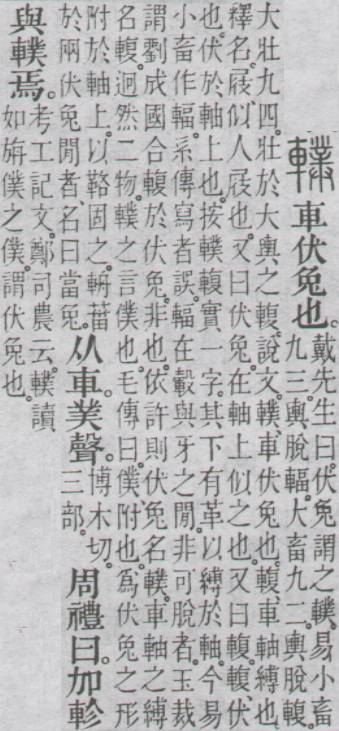 轐 車伏兔也。
戴先生曰。伏兔謂之轐。易小畜
九三。輿脫輻。大畜九二。輿脫輹。
大壯九四。壯於大輿之輹。說文。轐、車伏兔也。輹、車軸縛也。
釋名。屐、似人屐也。又曰伏兔。在軸上似之也。又曰輹。輹、伏
也。伏於軸上也。按轐輹實一字。其下有革以縛於軸。今易
小畜作輻。系傳寫者誤。輻在轂與牙之閒。非可脫者。玉裁
謂劉成國合輹於伏兔。非也。依許則伏兔名轐。車軸之縛
名輹。迥然二物。轐之言僕也。毛傳曰。僕、附也。爲伏兔之形
附於軸上。以鞈固之。輈菑
於兩伏兔閒者。名曰當兔。
从車。菐聲。
博木切。
三部。
周禮曰。加軫
與轐焉。
考工記文。鄭司農云。轐讀
如旃僕之僕。謂伏兔也。